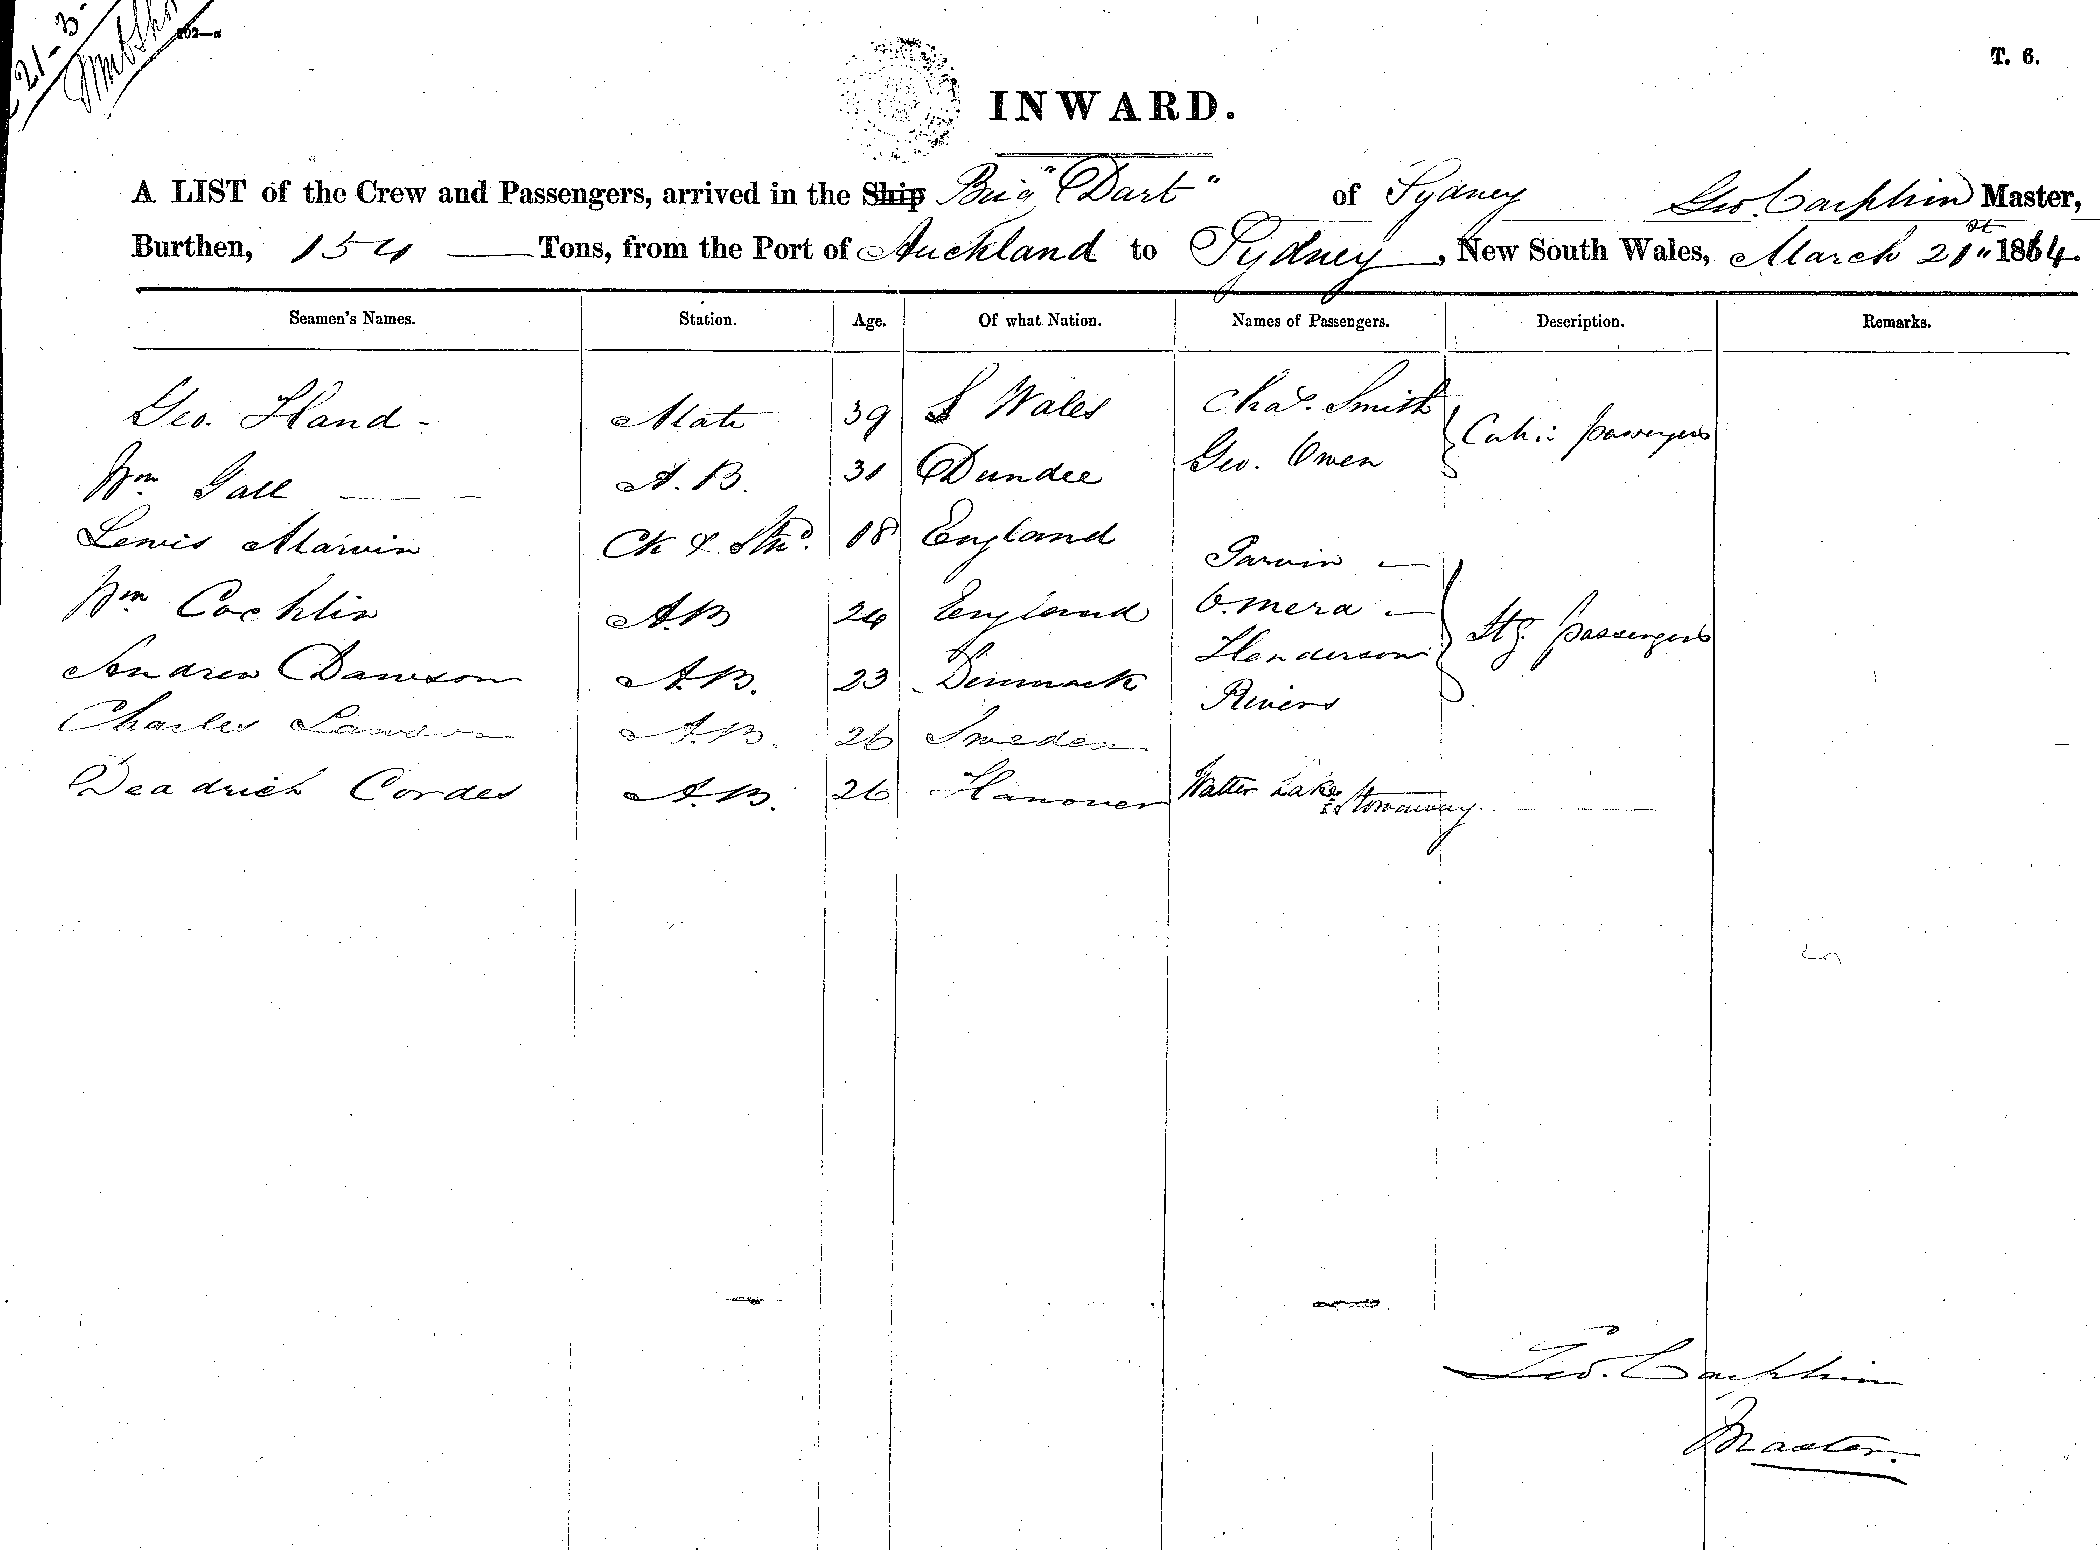 21-3-
T. 6.
INWARD.
A LIST of the Crew and Passengers, arrived in the Ship Brig "Dart" of Sydney Geo. Carphin Master,
Burthen, 154 Tons, from the Port of Auckland to Sydney, New South Wales, March 21st 1864.
Seamen's Names. Station. Age. Of what Nation. Names of Passengers. Description. Remarks.
Geo. Hand - Mate 39 S Wales Chas. Smith
Cabin passengers
Wm Gall A.B. 31 Dundee Geo. Owen
Lewis Marvin Ck & Stwd. 18 England
Garvin
Wm Cochlin A.B 24 England O.mera
Stg. passengers
Henderson
Andrew Dawson A.B. 23 Dinmark
Rivers
Charles Lawson A.B. 26 Sweden
Deadrich Cordes A.B. 26 Hanover Walter Lake Stowaway
Geo. Carphin
Master.